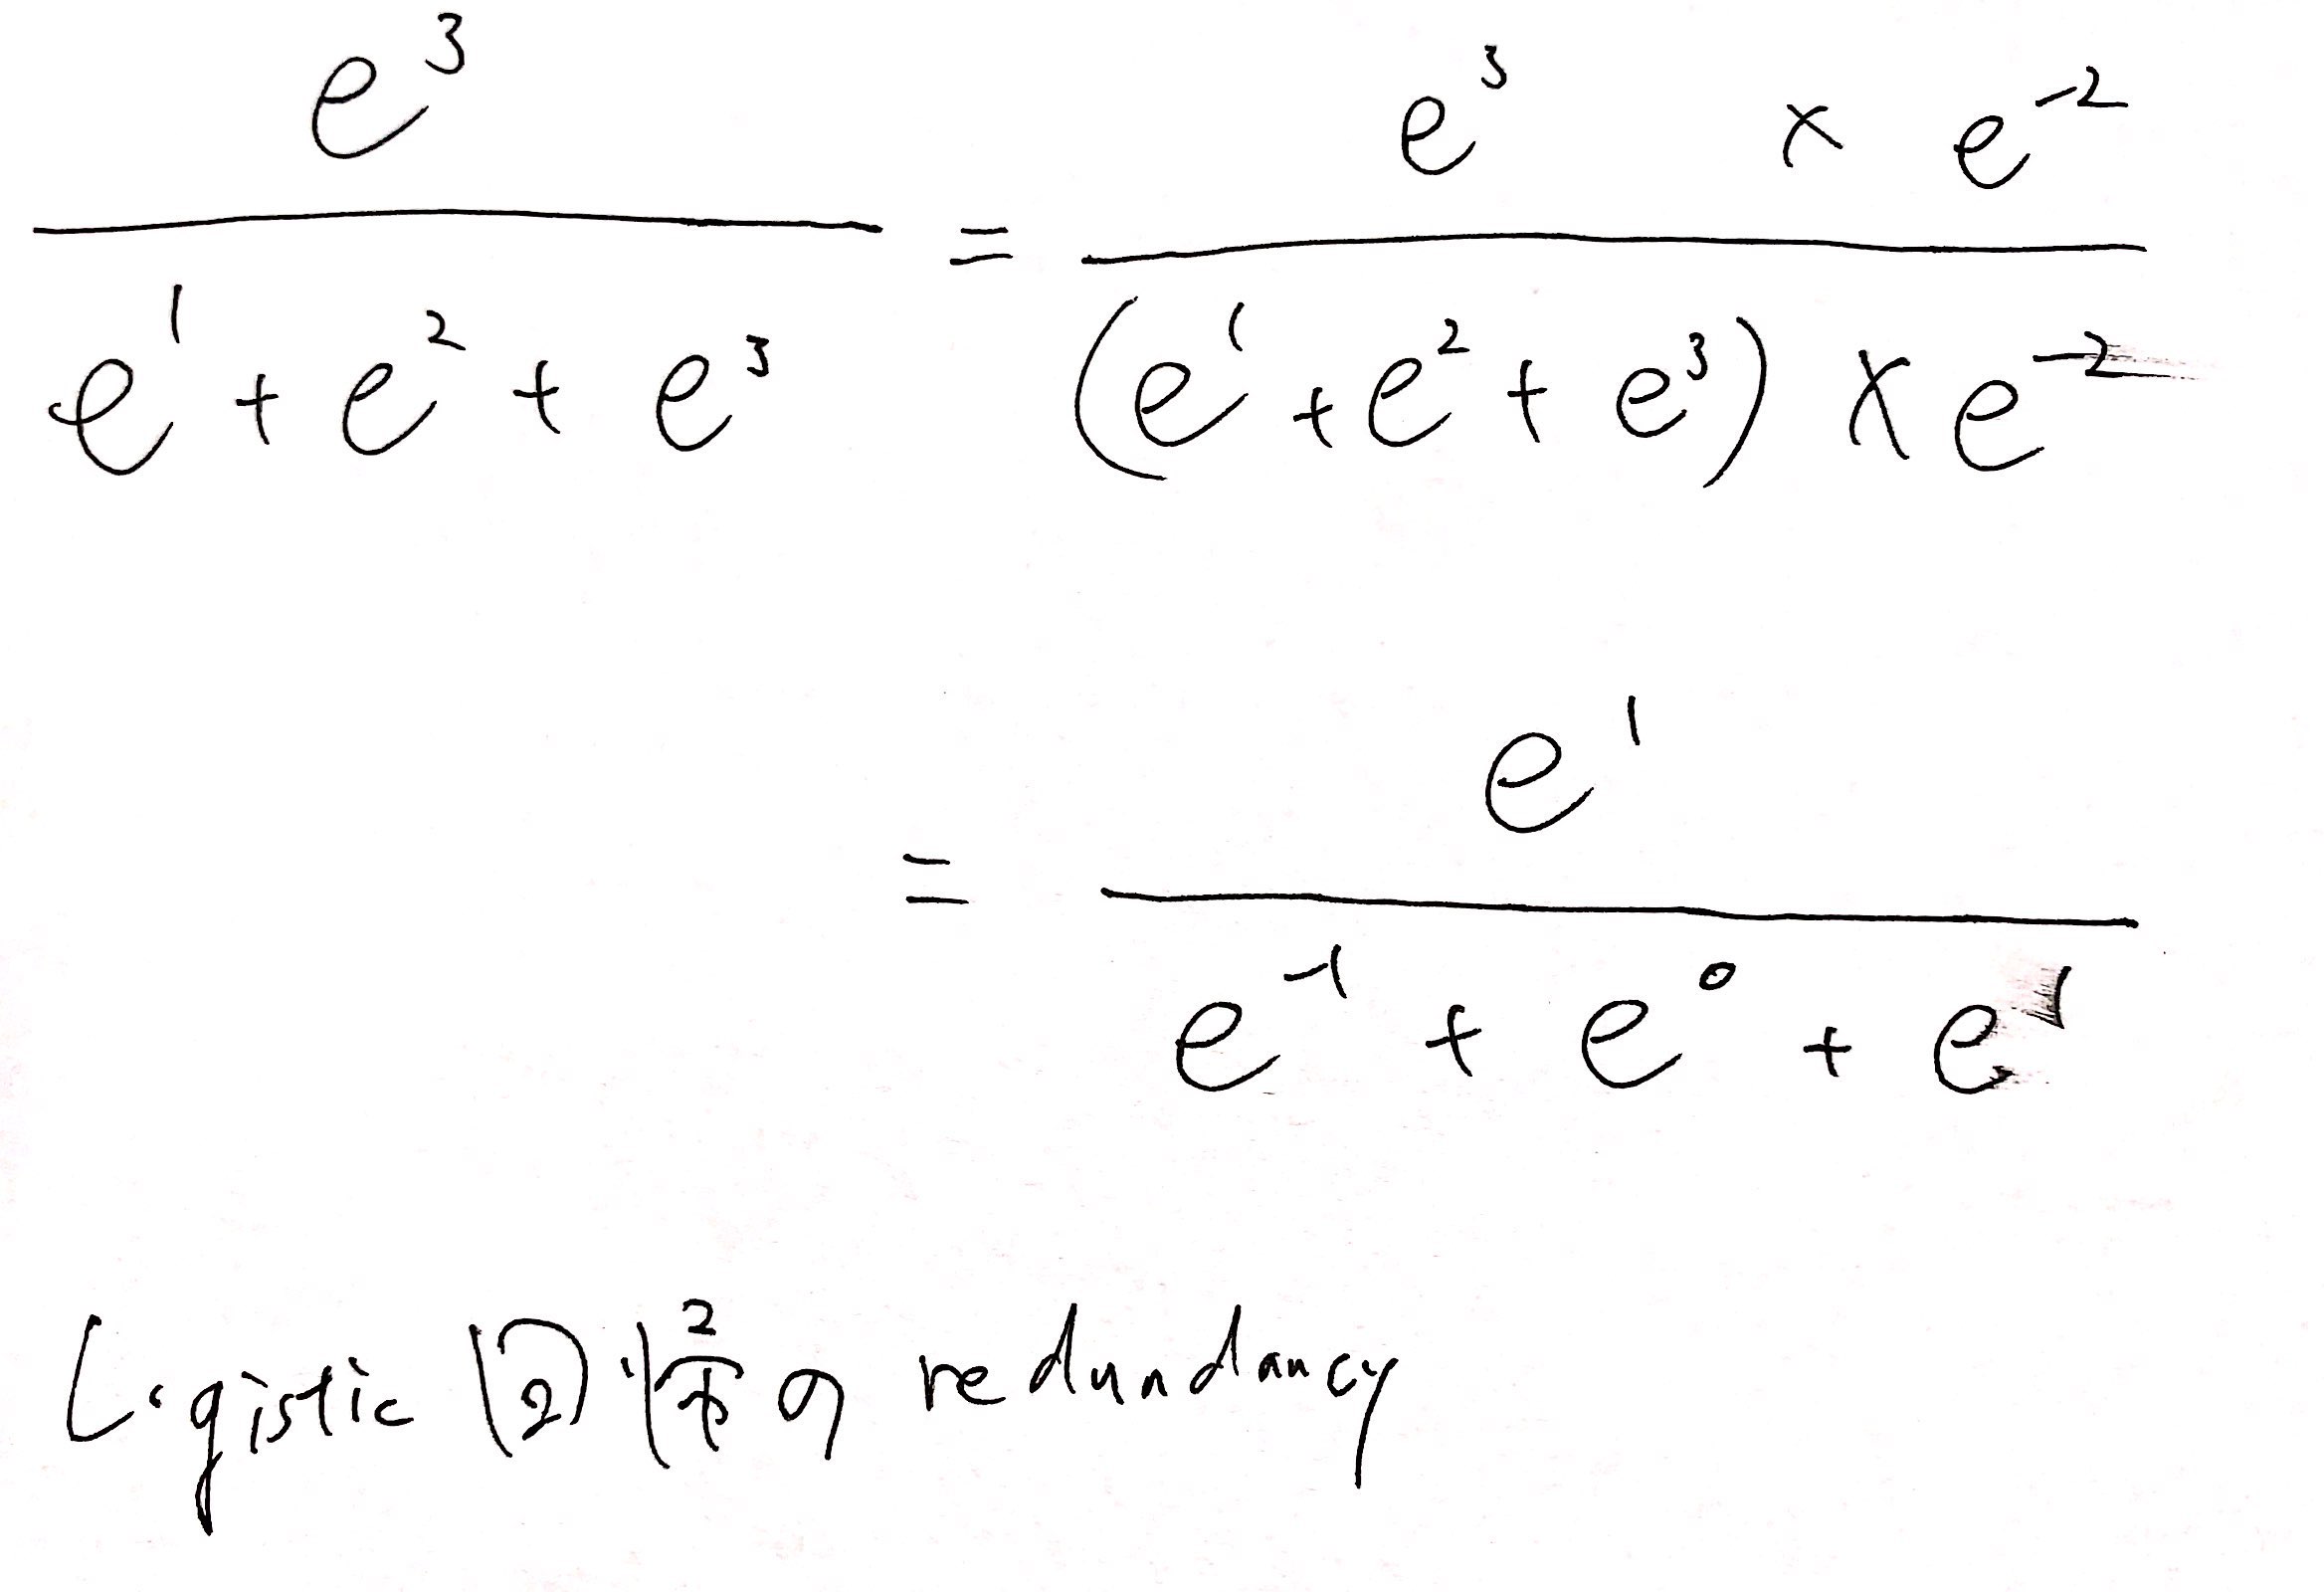 e³ / (e¹ + e² + e³) = (e³ × e⁻²) / ((e¹ + e² + e³) × e⁻²)
= e¹ / (e⁻¹ + e⁰ + e¹)
Logistic 回归の redundancy